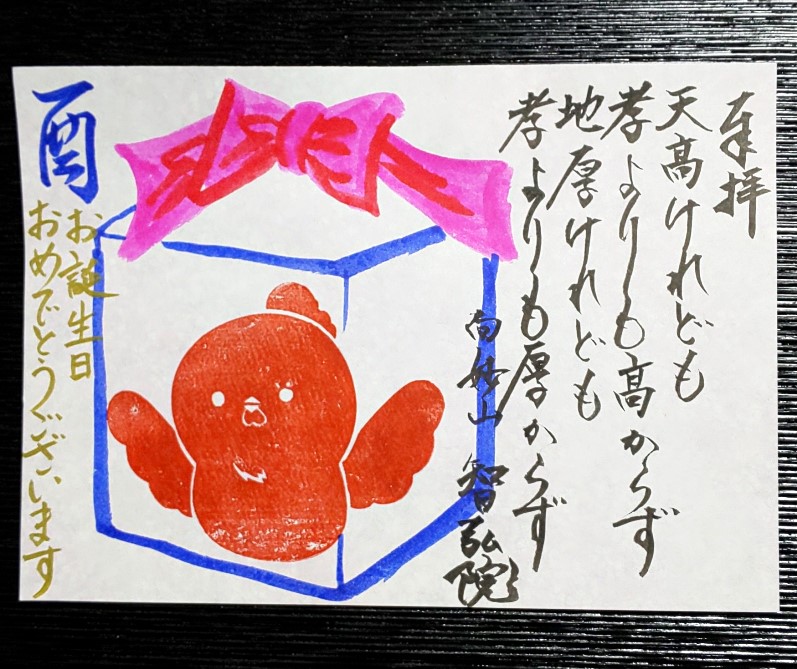 奉拝
天高けれども
孝よりも高からず
地厚けれども
孝よりも厚からず
向妙山 智弘院
酉
お誕生日
おめでとうございます